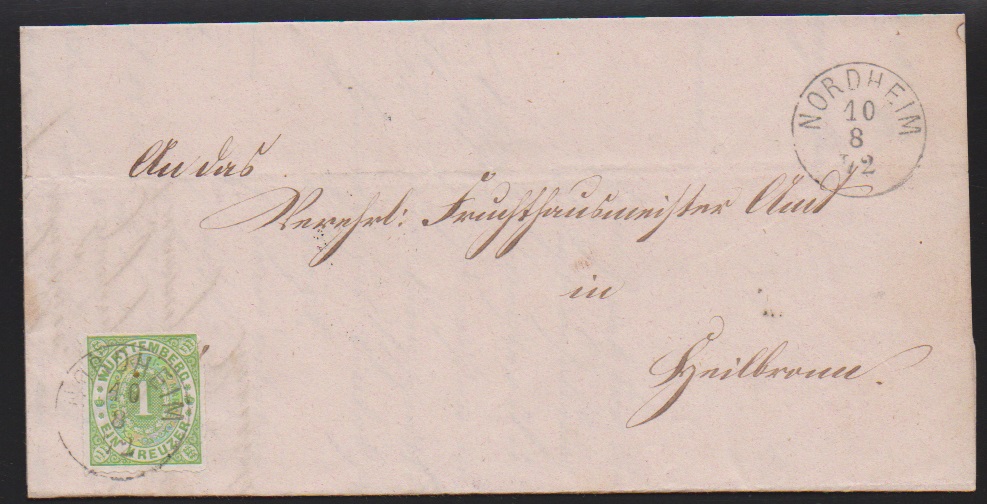 NORDHEIM
10
8
72
An das
Verehrl: Fruchthausmeister Amt
in
Heilbronn.
WÜRTTEMBERG
1
EIN KREUZER
NORDHEIM
10
8